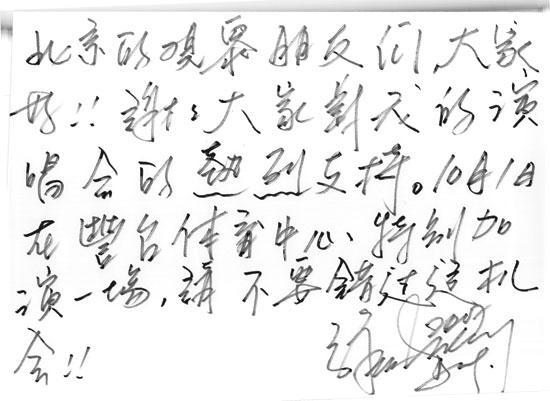 北京的观众朋友们,大家
好!!謝谢大家對我的演
唱会的熱烈支持。10月1日
在豐台体育中心、特别加
演一場,請不要錯过這机
会!!